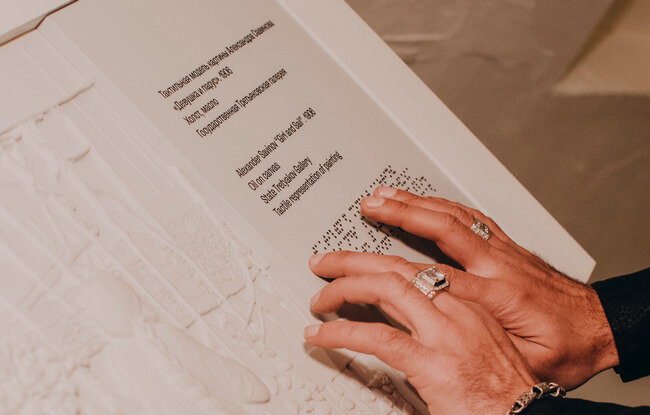 Тактильная модель картины Александра Савинова
«Девушка и парус», 1906
Холст, масло
Государственная Третьяковская галерея
Alexander Savinov "Girl and Sail", 1906
Oil on canvas
State Tretyakov Gallery
Tactile representation of painting